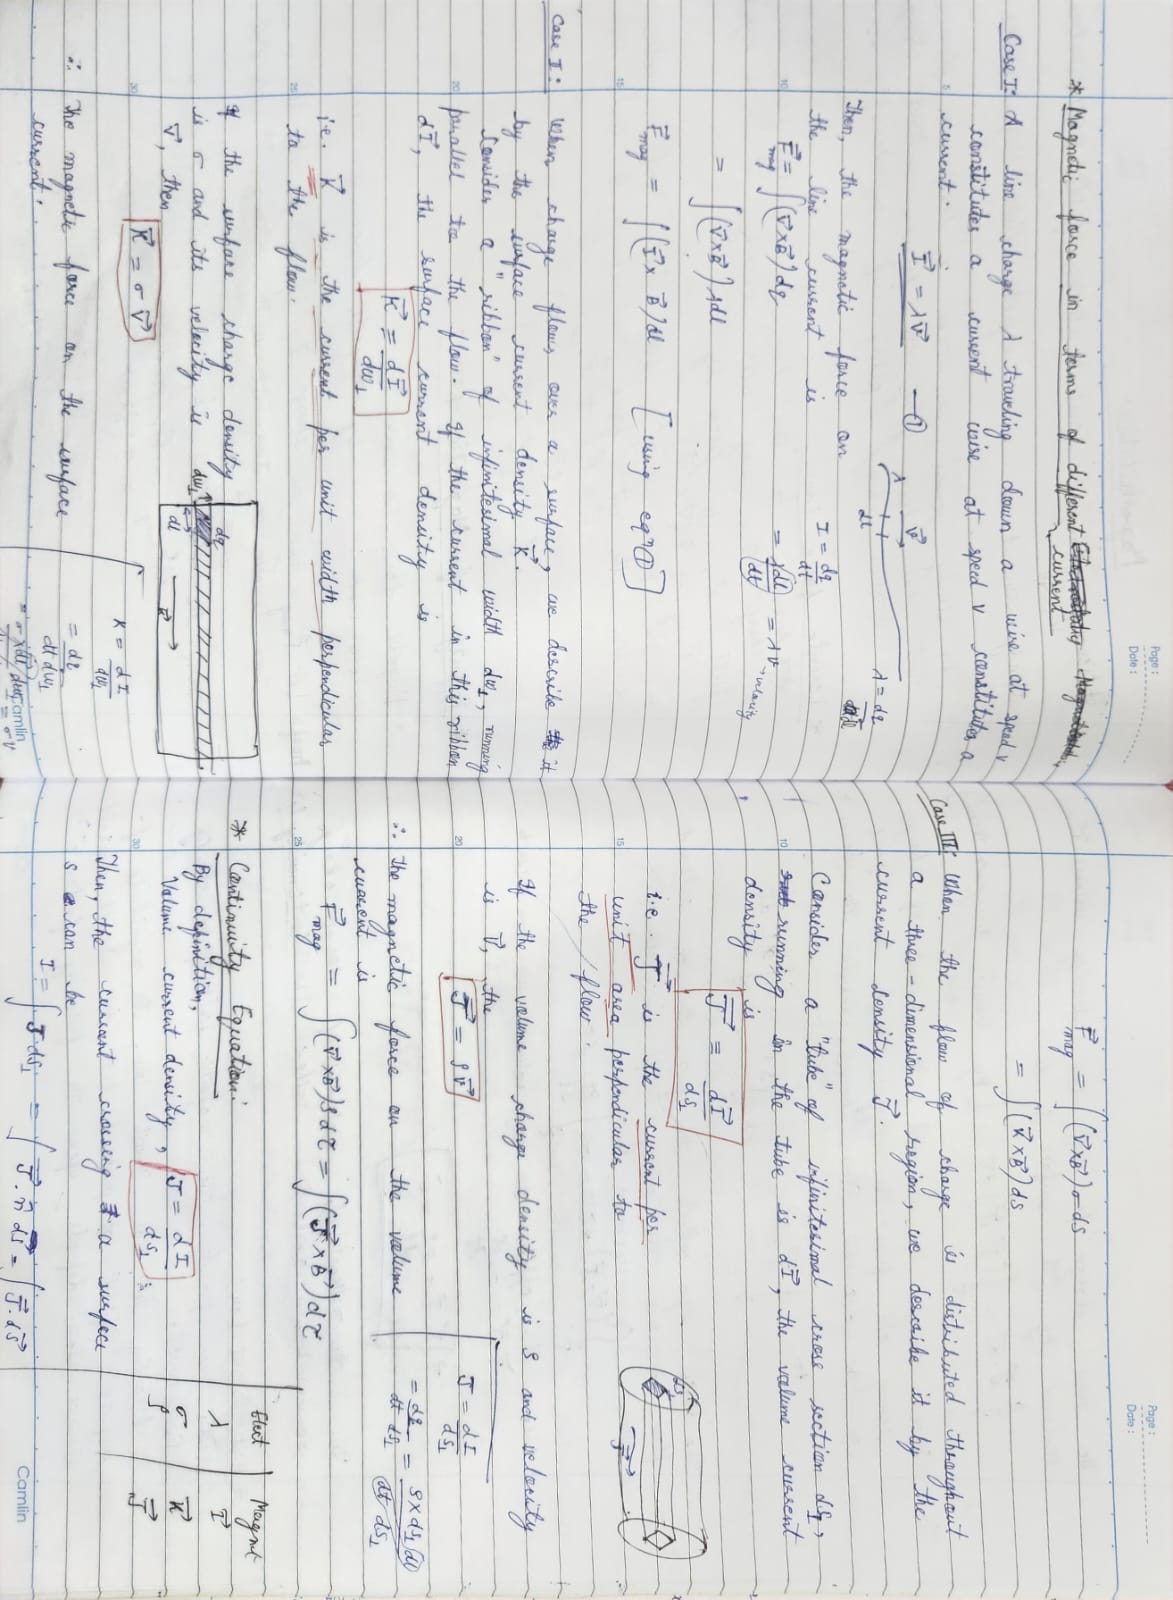 Page:
Date:
* Magnetic force in terms of different current
Case I: A line charge λ traveling down a wire at speed v
constitutes a current wire at speed v constitutes a
current.
I⃗ = λv⃗ —①
λ v⃗ dl
λ = dq/dl
Then, the magnetic force on
the line current is
F⃗mag = ∫(v⃗×B⃗)dq
= ∫(v⃗×B⃗)λdl
F⃗mag = ∫(I⃗×B⃗)dl [using eqⁿ①]
I = dq/dt
= λdl/dt = λv → velocity
Case I: When charge flows over a surface, we describe it
by the surface current density K⃗.
Consider a "ribbon" of infinitesimal width dw⊥, running
parallel too the flow. If the current in this ribbon
dI⃗, the surface current density is
K⃗ = dI⃗/dw⊥
i.e. K⃗ is the current per unit width perpendicular
to the flow.
If the surface charge density
is σ and its velocity is
v⃗, then
K⃗ = σv⃗
dw⊥ dq dl
∴ The magnetic force on the surface
current:
K = dI/dw⊥
= dq/dt dw⊥
= σv
Camlin
Page:
Date:
F⃗mag = ∫(v⃗×B⃗)σds
= ∫(K⃗×B⃗)ds
Case III: When the flow of charge is distributed throughout
a three-dimensional region, we describe it by the
current density J⃗.
Consider a "tube" of infinitesimal cross section ds⊥,
running in the tube is dI⃗, the volume current
density is
J⃗ = dI⃗/ds⊥
i.e. J⃗ is the current per
unit area perpendicular to
the flow.
If the volume charge density is ρ and velocity
is v⃗, the
J⃗ = ρv⃗
J = dI/ds⊥
= dq/dt ds⊥ = ρ×ds⊥dl/dt ds⊥
∴ the magnetic force on the volume
current is
F⃗mag = ∫(v⃗×B⃗)ρdτ = ∫(J⃗×B⃗)dτ
* Continuity Equation:
By definition,
Volume current density, J = dI/ds⊥
Then, the current crossing a surface
s can be
I = ∫J ds⊥ = ∫J⃗.n̂ ds = ∫J⃗.ds⃗
Elect Magnet
λ I⃗
σ K⃗
ρ J⃗
Camlin